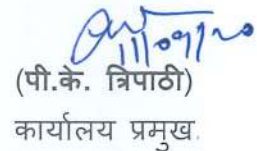 11/09/20
(पी.के. त्रिपाठी)
कार्यालय प्रमुख